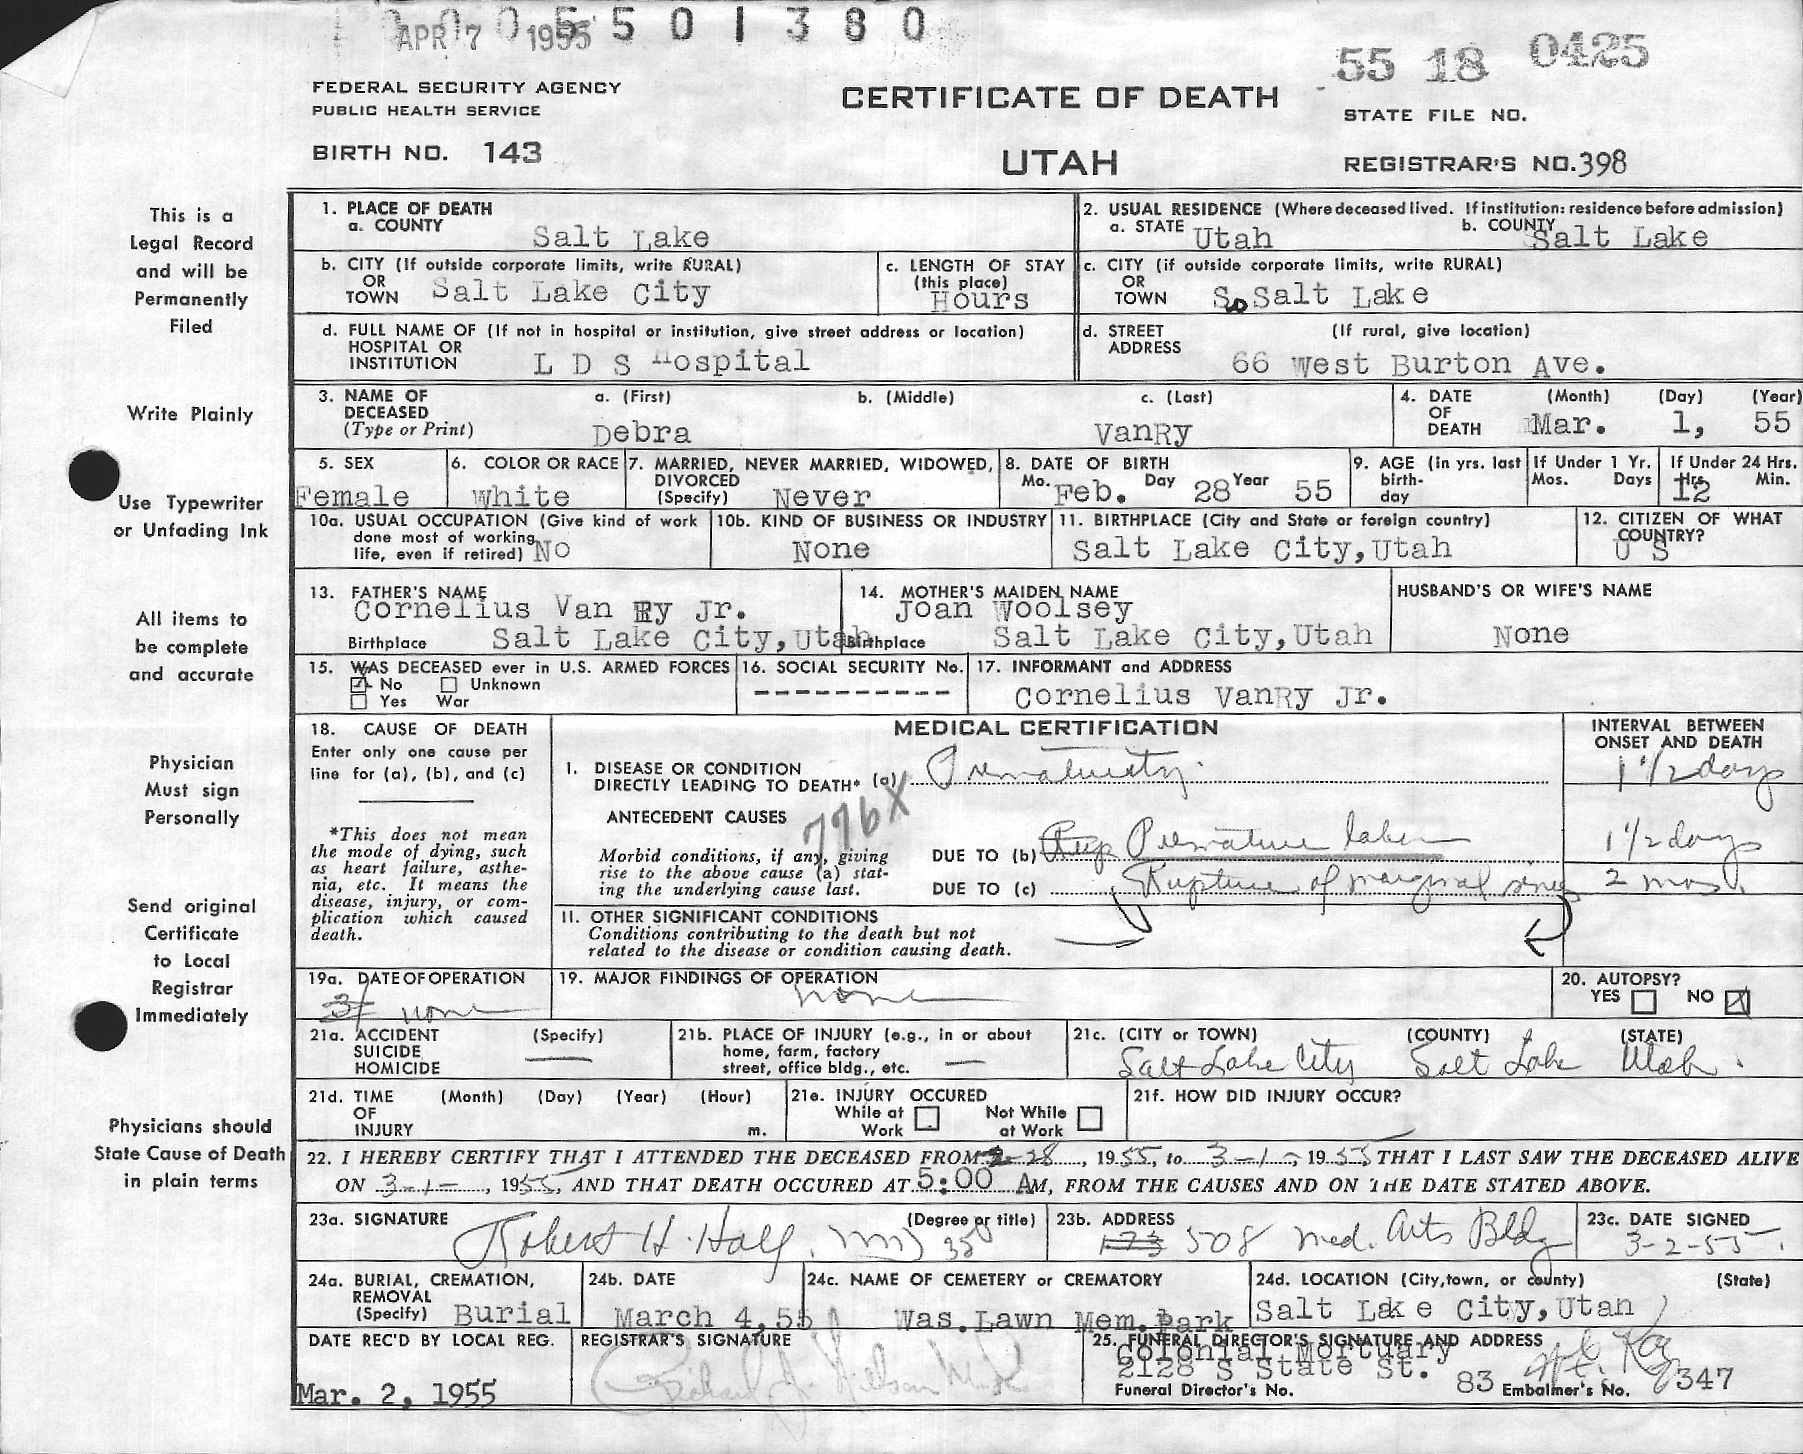 APR 7 1955
0 5 5 0 1 3 8 0
55 18 0425
FEDERAL SECURITY AGENCY
PUBLIC HEALTH SERVICE
CERTIFICATE OF DEATH
STATE FILE NO.
BIRTH NO. 143
UTAH
REGISTRAR'S NO. 398
This is a
Legal Record
and will be
Permanently
Filed
Write Plainly
Use Typewriter
or Unfading Ink
All items to
be complete
and accurate
Physician
Must sign
Personally
Send original
Certificate
to Local
Registrar
Immediately
Physicians should
State Cause of Death
in plain terms
1. PLACE OF DEATH
a. COUNTY Salt Lake
2. USUAL RESIDENCE (Where deceased lived. If institution: residence before admission)
a. STATE Utah b. COUNTY Salt Lake
b. CITY (If outside corporate limits, write RURAL)
OR
TOWN Salt Lake City
c. LENGTH OF STAY
(this place)
Hours
c. CITY (if outside corporate limits, write RURAL)
OR
TOWN So Salt Lake
d. FULL NAME OF (If not in hospital or institution, give street address or location)
HOSPITAL OR
INSTITUTION L D S Hospital
d. STREET (If rural, give location)
ADDRESS
66 West Burton Ave.
3. NAME OF a. (First) b. (Middle) c. (Last)
DECEASED
(Type or Print) Debra VanRy
4. DATE (Month) (Day) (Year)
OF
DEATH Mar. 1, 55
5. SEX
Female
6. COLOR OR RACE
White
7. MARRIED, NEVER MARRIED, WIDOWED,
DIVORCED
(Specify) Never
8. DATE OF BIRTH
Mo. Feb. Day 28 Year 55
9. AGE (in yrs. last
birth-
day
If Under 1 Yr.
Mos. Days
If Under 24 Hrs.
Hrs. Min.
12
10a. USUAL OCCUPATION (Give kind of work
done most of working
life, even if retired) No
10b. KIND OF BUSINESS OR INDUSTRY
None
11. BIRTHPLACE (City and State or foreign country)
Salt Lake City, Utah
12. CITIZEN OF WHAT
COUNTRY?
U S
13. FATHER'S NAME
Cornelius Van Ry Jr.
Birthplace Salt Lake City, Utah
14. MOTHER'S MAIDEN NAME
Joan Woolsey
Birthplace Salt Lake City, Utah
HUSBAND'S OR WIFE'S NAME
None
15. WAS DECEASED ever in U.S. ARMED FORCES
No Unknown
Yes War
16. SOCIAL SECURITY No.
----------
17. INFORMANT and ADDRESS
Cornelius VanRy Jr.
18. CAUSE OF DEATH
Enter only one cause per
line for (a), (b), and (c)
*This does not mean
the mode of dying, such
as heart failure, asthe-
nia, etc. It means the
disease, injury, or com-
plication which caused
death.
MEDICAL CERTIFICATION
INTERVAL BETWEEN
ONSET AND DEATH
I. DISEASE OR CONDITION
DIRECTLY LEADING TO DEATH* (a) Prematurity. 1 1/2 days
776X
ANTECEDENT CAUSES
Morbid conditions, if any, giving
rise to the above cause (a) stat-
ing the underlying cause last.
DUE TO (b) Premature labor 1 1/2 days
DUE TO (c) Rupture of marginal sinus 2 mos.
II. OTHER SIGNIFICANT CONDITIONS
Conditions contributing to the death but not
related to the disease or condition causing death.
19a. DATE OF OPERATION
none
19. MAJOR FINDINGS OF OPERATION
none
20. AUTOPSY?
YES NO X
21a. ACCIDENT (Specify)
SUICIDE
HOMICIDE
21b. PLACE OF INJURY (e.g., in or about
home, farm, factory
street, office bldg., etc.
21c. (CITY or TOWN) (COUNTY) (STATE)
Salt Lake City Salt Lake Utah.
21d. TIME (Month) (Day) (Year) (Hour)
OF
INJURY m.
21e. INJURY OCCURED
While at Not While
Work at Work
21f. HOW DID INJURY OCCUR?
22. I HEREBY CERTIFY THAT I ATTENDED THE DECEASED FROM 2-28, 1955, to 3-1-, 1955 THAT I LAST SAW THE DECEASED ALIVE
ON 3-1-, 1955, AND THAT DEATH OCCURED AT 5:00 AM, FROM THE CAUSES AND ON THE DATE STATED ABOVE.
23a. SIGNATURE (Degree or title)
Robert H. Half, MD
23b. ADDRESS
173 508 Med. Arts Bldg
23c. DATE SIGNED
3-2-55.
24a. BURIAL, CREMATION,
REMOVAL
(Specify) Burial
24b. DATE
March 4, 55
24c. NAME OF CEMETERY or CREMATORY
Was. Lawn Mem. Park
24d. LOCATION (City, town, or county) (State)
Salt Lake City, Utah
DATE REC'D BY LOCAL REG.
Mar. 2, 1955
REGISTRAR'S SIGNATURE
25. FUNERAL DIRECTOR'S SIGNATURE AND ADDRESS
Colonial Mortuary
2128 S State St.
Funeral Director's No. 83 Embalmer's No. 347